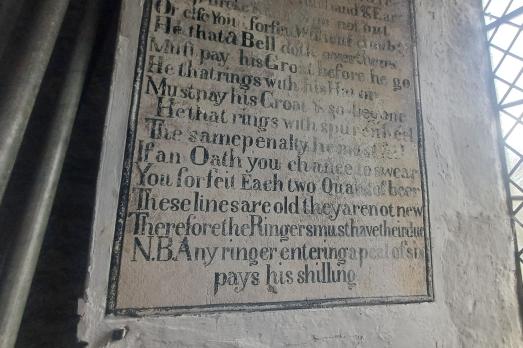 Or else You forfeit without doubt
He that a Bell doth overthrow
Must pay his Groat before he go
He that rings with his Hat on
Must pay his Groat & so begone
He that rings with spur on heel
The same penalty he must feel
If an Oath you chance to swear
You forfeit Each two Quarts of beer
These lines are old they are not new
Therefore the Ringers must have their due
N.B Any ringer entering a peal of six
pays his shilling